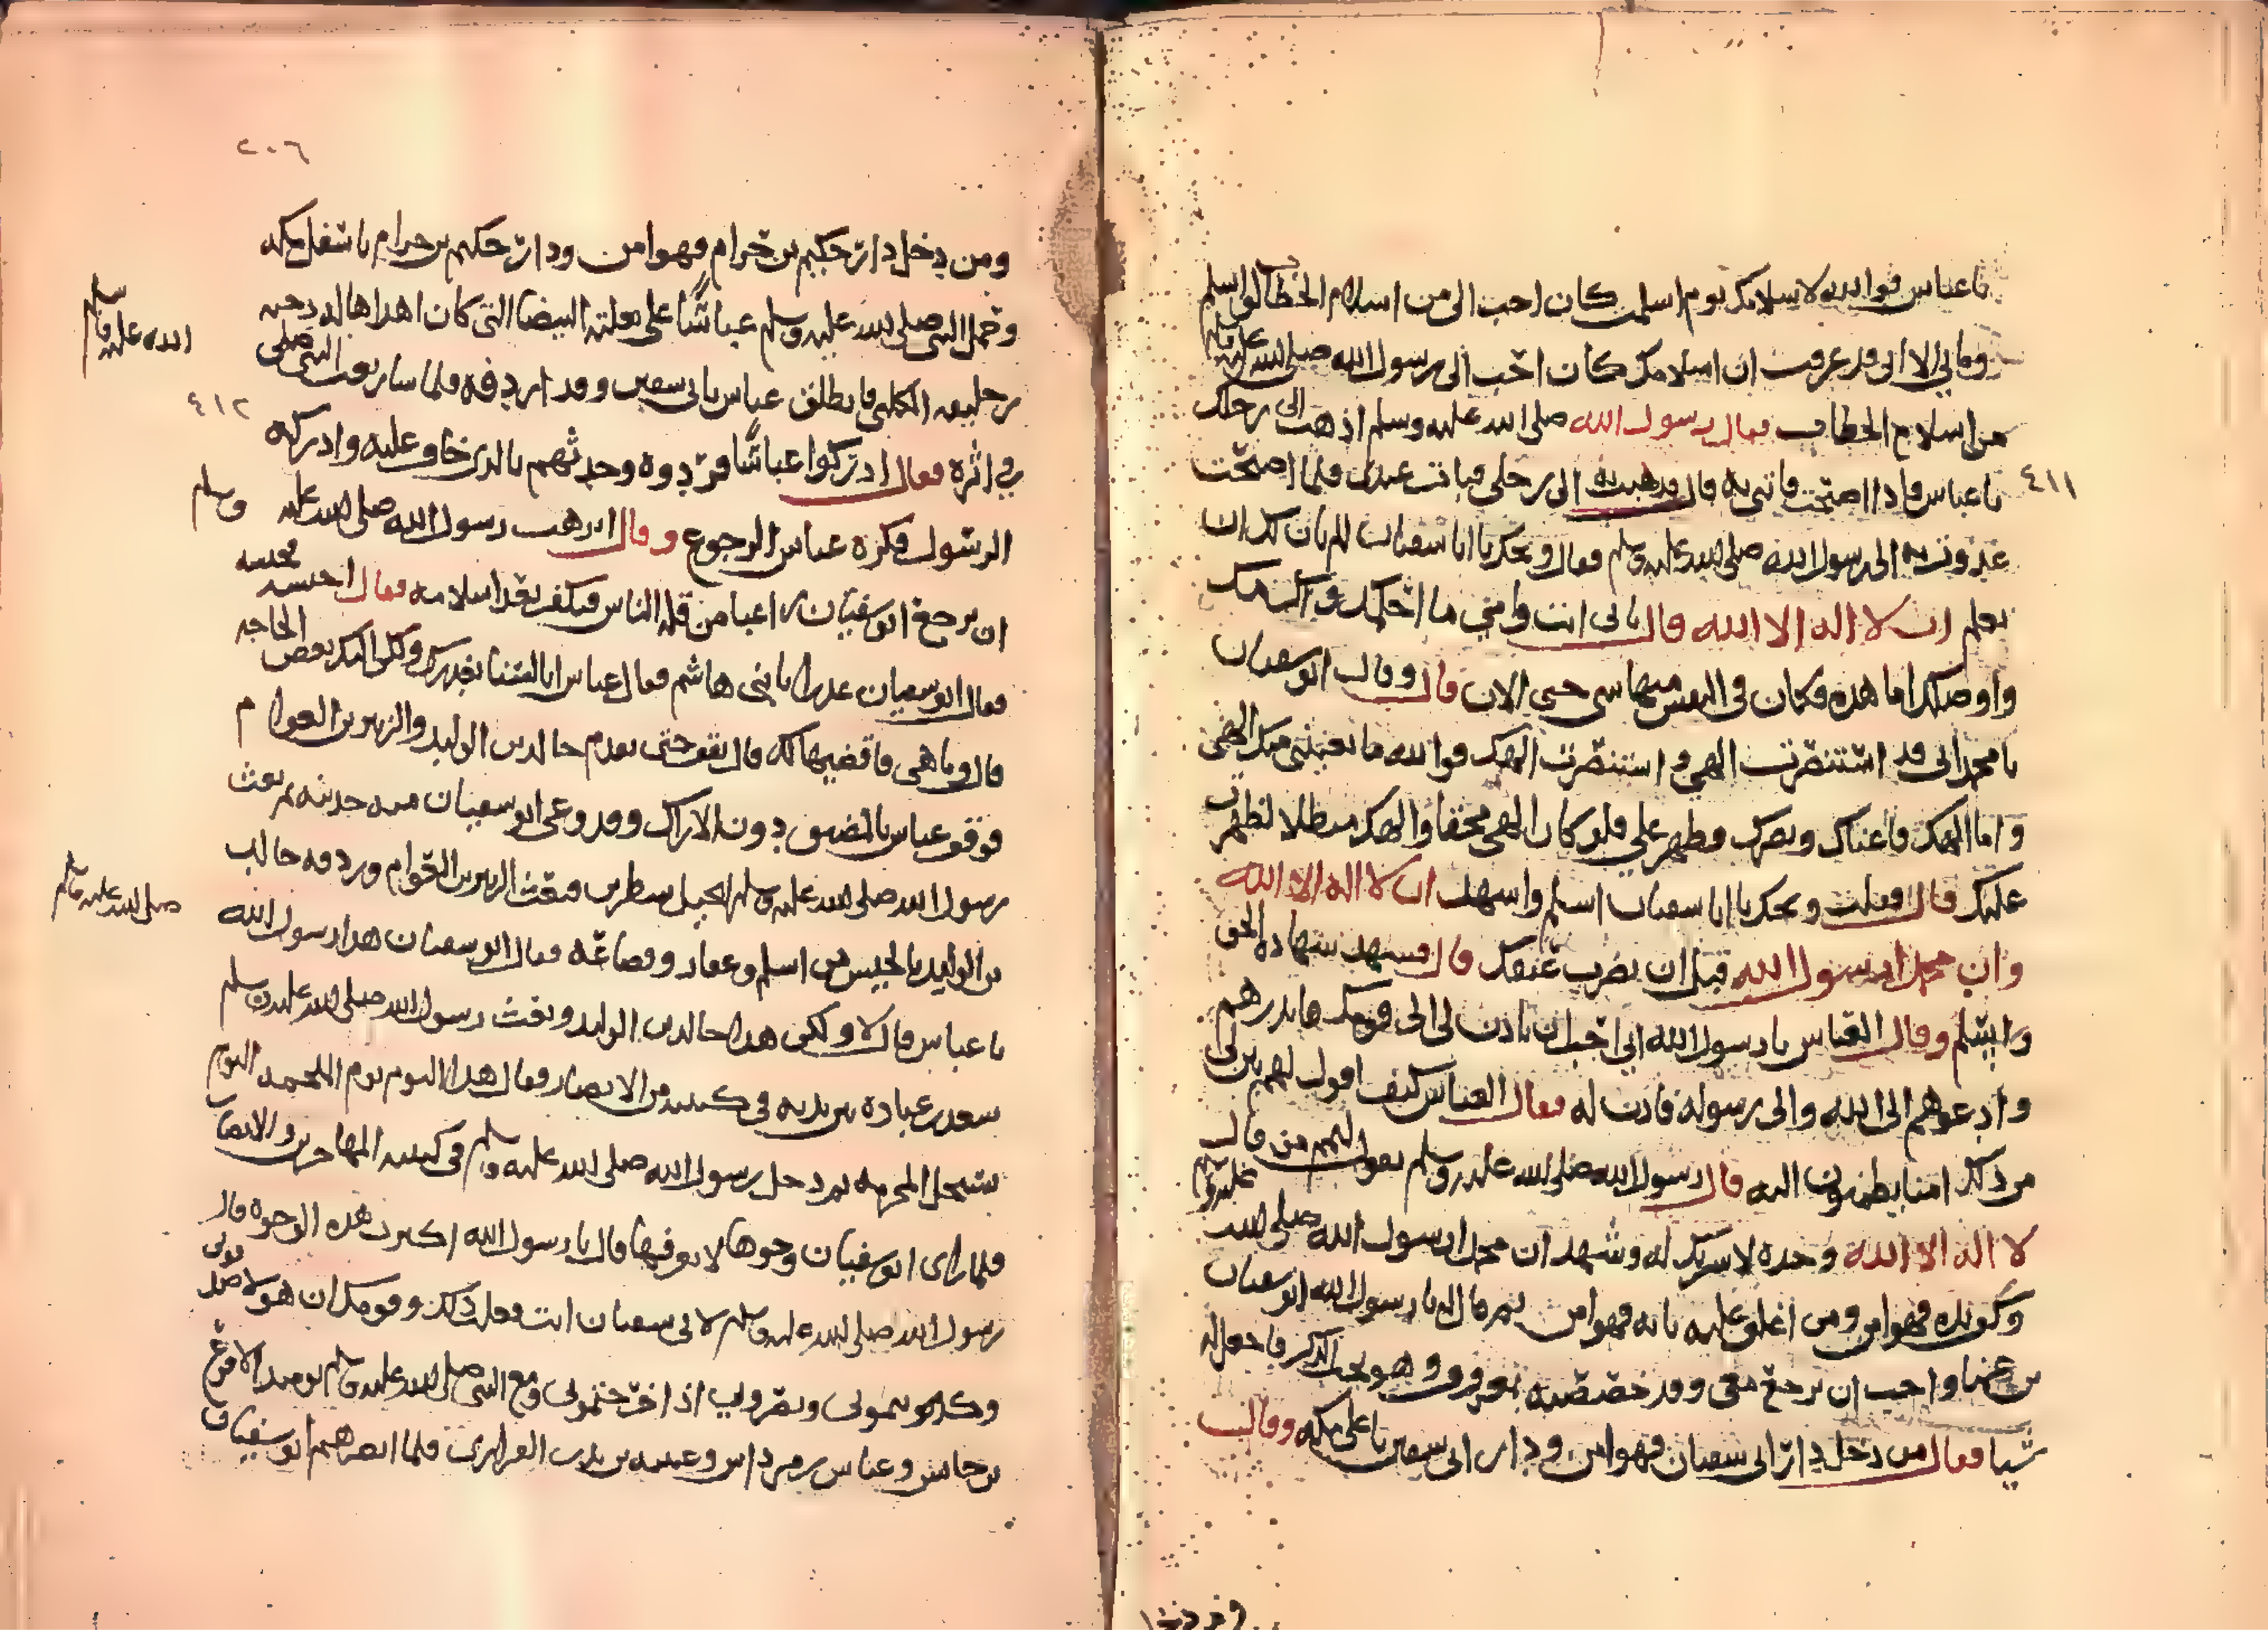 يا عباس فوالله لاسلامك يوم اسلمت كان احب الي من اسلام الخطاب لو اسلم
وما بي الا اني قد عرفت ان اسلامك كان احب الى رسول الله صلى الله عليه وسلم
من اسلام الخطاب فقال رسول الله صلى الله عليه وسلم اذهب الى رحلك
٤١١
يا عباس فاذا اصبحت فاتني به قال فذهبت به الى رحلي فبات عندي فلما اصبحت
غدوت به الى رسول الله صلى الله عليه وسلم فقال ويحك يا ابا سفيان الم يان لك ان
تعلم ان لا اله الا الله قال بابي انت وامي ما احلمك واكرمك
واوصلك اما هذه فكان في النفس منها شي حتى الان قال وقال ابو سفيان
يا محمد اني قد استنصرت الهي واستنصرت الهك فوالله ما لقيتني منك الهي
واما الهك فاعناك ونصرك وظهر علي فلو كان الهي محقا والهك مبطلا لظهرت
عليك قال فقلت ويحك يا ابا سفيان اسلم واشهد ان لا اله الا الله
وان محمدا رسول الله قبل ان يضرب عنقك قال فشهد شهادة الحق
واسلم وقال العباس يا رسول الله اني احب ان تاذن لي الى قومك فانذرهم
وادعوهم الى الله والى رسوله فاذن له فقال العباس كيف اقول لهم بين لي
من ذلك امنا يطمنون اليه قال رسول الله صلى الله عليه وسلم تقول لهم من قال
لا اله الا الله وحده لا شريك له وشهد ان محمدا رسول الله صلى الله عليه وسلم
وكف يده فهو امن ومن اغلق عليه بابه فهو امن ثم قال له يا رسول الله ابو سفيان
بن عمنا واحب ان يرجع معي وقد خصصته بمعروف وهو يحب الذكر فاجعل له
شيا فقال من دخل دار ابي سفيان فهو امن ودار ابي سفين باعلى مكه وقال
٢٠٦
ومن دخل دار حكيم بن حزام فهو امن ودار حكيم بن حزام باسفل مكه
وحمل النبي صلى الله عليه وسلم عباسا على بغلته البيضا التي كان اهداها له دحيه
بن خليفه الكلبي فانطلق عباس بابي سفين وقد اردفه فلما سار بعث النبي صلى
الله عليه وسلم
٤١٢
في اثره فقال ادركوا عباسا فردوه وحدثهم بالذي خاف عليه وادركه
الرسول فكره عباس الرجوع وقال ايرهب رسول الله صلى الله عليه وسلم
ان يرجع ابو سفيان راغبا من قله الناس فيكفر بعد اسلامه فقال احبسه فحبسه
فقال ابو سفيان غدرا يا بني هاشم فقال عباس انا لسنا بغدر ولكن لي اليك بعض الحاجه
قال وما هي فاقضيها لك قال بقوحتى يقدم خالد بن الوليد والزبير بن العوام
فوقف عباس بالمضيق دون الاراك وقد وعى ابو سفيان منه حديثه ثم بعث
رسول الله صلى الله عليه وسلم الخيل سطرين فبعث الزبير بن العوام وردفه خالد
بن الوليد بالجيش من اسلم وغفار وقضاعه فقال ابو سفيان هذا رسول الله
صلى الله عليه وسلم
يا عباس قال لا ولكن هذا خالد بن الوليد وبعث رسول الله صلى الله عليه وسلم
سعد بن عباده بين يديه في كتيبه من الانصار فقال هذا اليوم يوم الملحمه اليوم
تستحل الحرمه ثم دخل رسول الله صلى الله عليه وسلم في كتيبه المهاجرين والانصار
فلما راى ابو سفيان وجوها لا يعرفها قال يا رسول الله اكثرت هذه الوجوه قال
رسول الله صلى الله عليه وسلم لابي سفيان انت فعلت ذلك وقومك ان هولا صدقوني
وكذبتموني ونصروني اذ اخرجتموني ومع النبي صلى الله عليه وسلم يوميذ الاقرع
بن حابس وعباس بن مرداس وعيينه بن بدر الفزاري فلما ابصرهم ابو سفيان